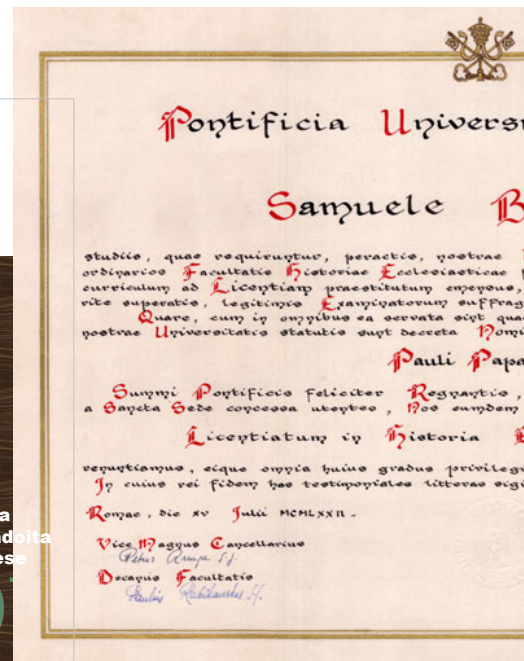 Pontificia Univers
Samuele B
studiis, quae requiruntur, peractis, nostrae
ordinarios Facultatis Historiae Ecclesiasticae
curriculum ad Licentiam praestitutum emensus,
rite superatis, legitimis Examinatorum suffrag
Quare, cum in omnibus ea servata sint quae
nostrae Universitatis statutis sunt decreta Nomi
Pauli Papa
Summi Pontificis feliciter Regnantis,
a Sancta Sede concessa utentes, Nos eumdem
Licentiatum in Historia
renuntiamus, eique omnia huius gradus privileg
In cuius rei fidem has testimoniales litteras sigi
Romae, die xv Julii MCMLXXII-
Vice Magnus Cancellarius
Petrus Arrupe S.J.
Decanus Facultatis
Paulus Rabikauskas S.J.
a
ndoita
ese